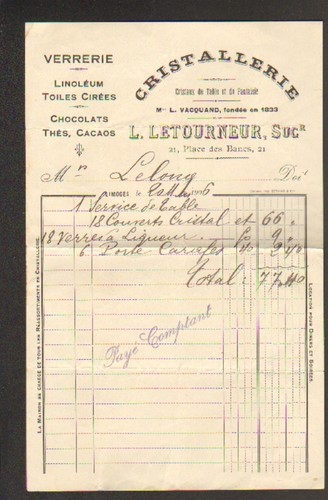 VERRERIE
LINOLÉUM
TOILES CIRÉES
CHOCOLATS
THÉS, CACAOS
CRISTALLERIE
Cristaux de Table et de Fantaisie
Mon L. VACQUAND, fondée en 1833
L. LETOURNEUR, SUCR
21, Place des Bancs, 21
Mr Lelong Doit
LIMOGES, le
1 Service de Table
18 Couverts Cristal et 66 "
18 Verres à Liqueur 50 9 "
6 Porte Carafes 40 2 40
Total : 77 40
Payé Comptant
LA MAISON SE CHARGE DE TOUS LES RÉASSORTIMENTS EN CRISTALLERIE.
LOCATION POUR DINERS ET SOIRÉES